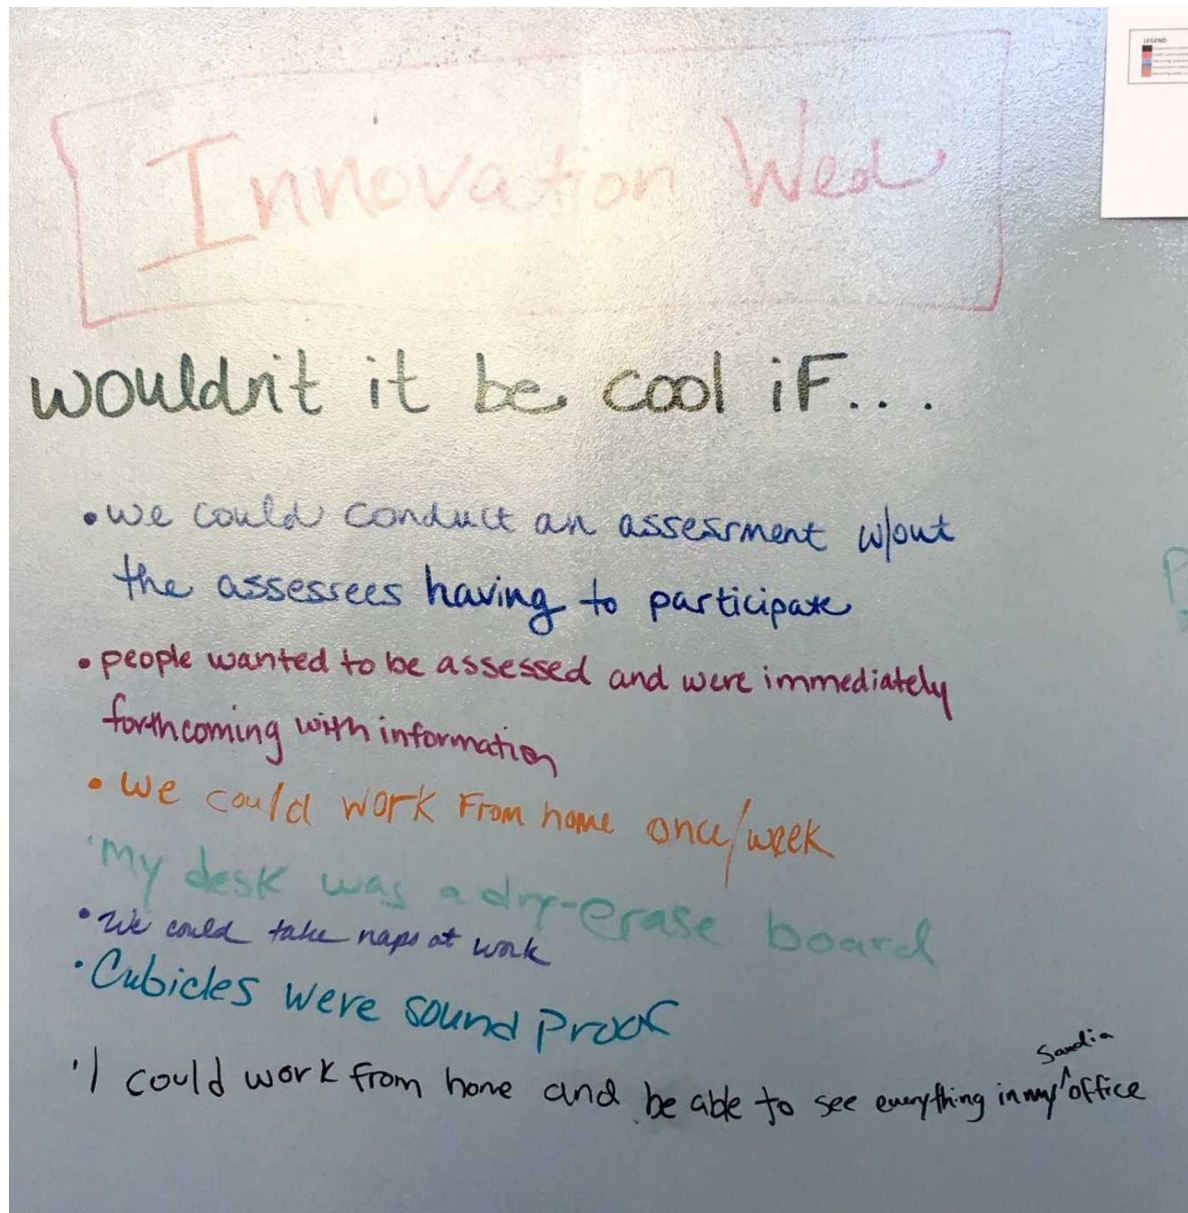 LEGEND
Innovation Wed
wouldn't it be cool iF...
• we could conduct an assessment w/out
the assessees having to participate
• people wanted to be assessed and were immediately
forthcoming with information
• we could work from home once/week
• My desk was a dry-erase board
• We could take naps at work
• Cubicles were sound proof
• I could work from home and be able to see everything in my ^Sandia office